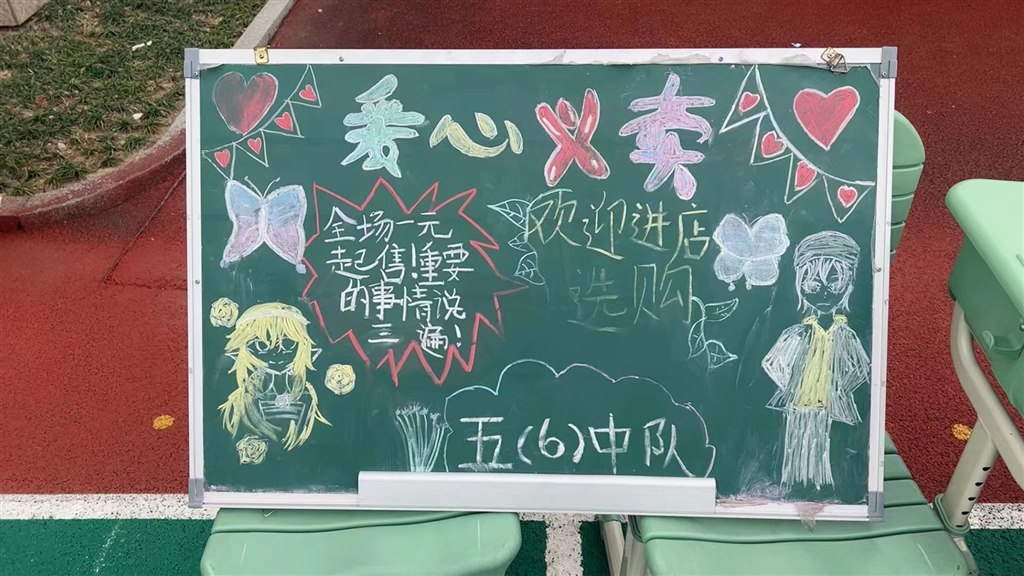 爱心义卖
全场一元
起售!重要
的事情说
三遍!
欢迎进店
选购
五(6)中队